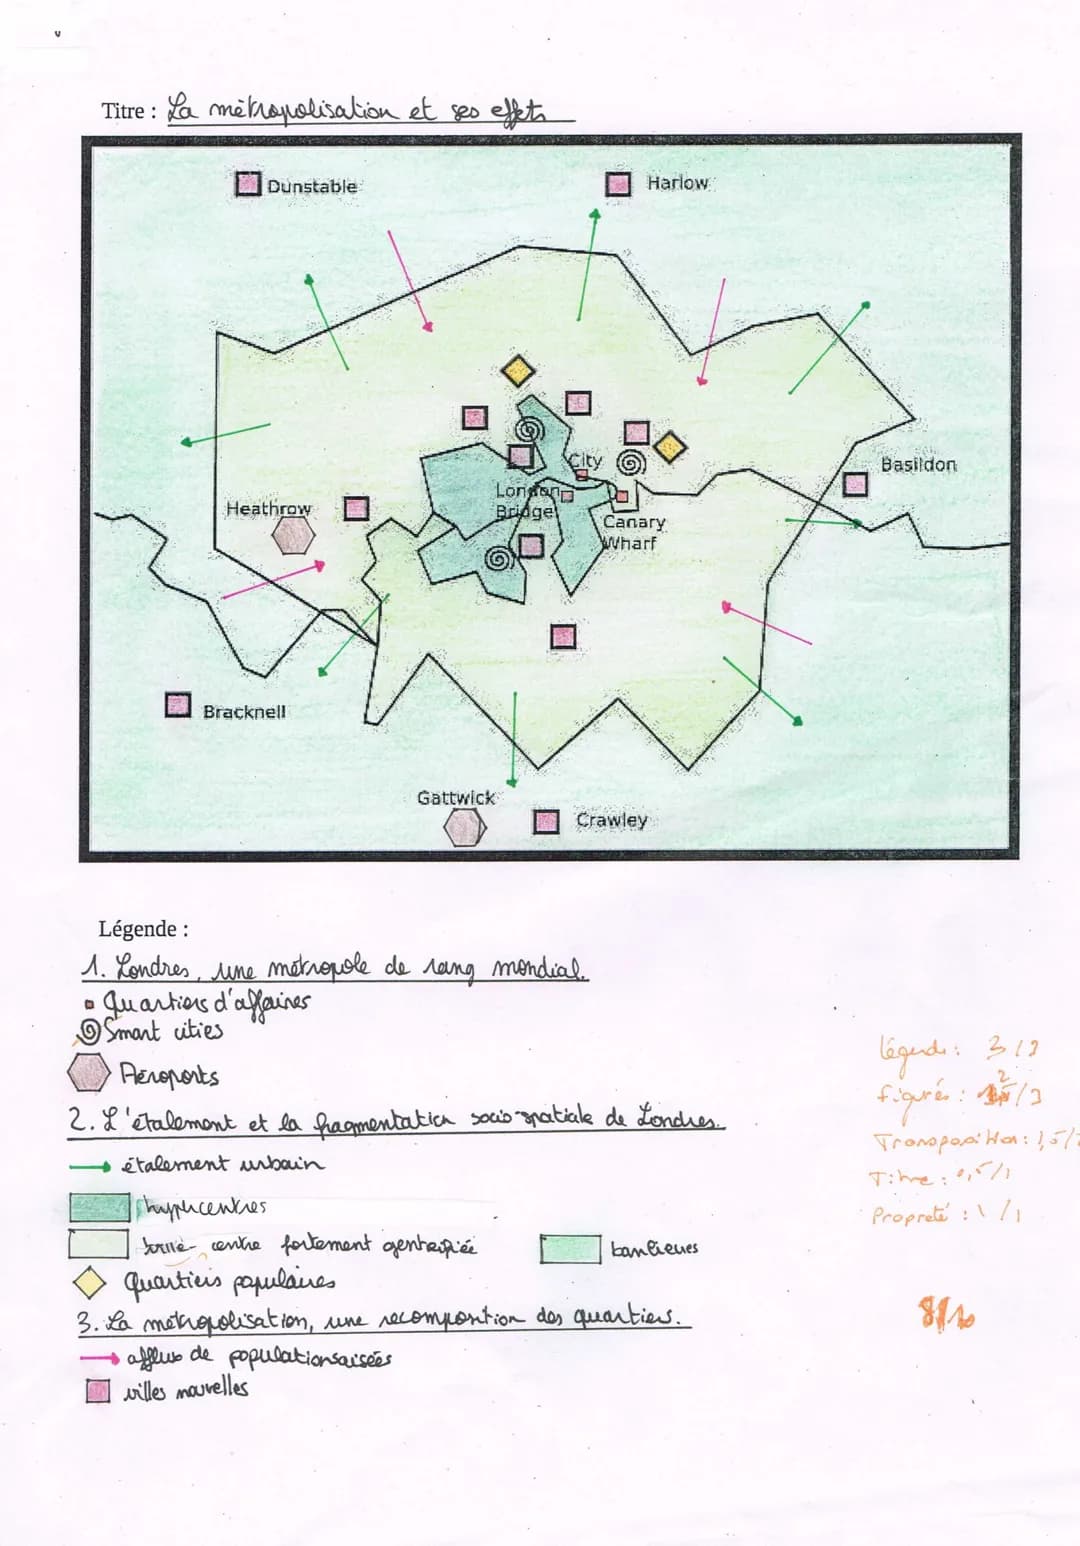 Titre : La métropolisation et ses effets
Dunstable
Harlow
Basildon
City
London
Bridge
Heathrow
Canary
Wharf
Bracknell
Gattwick
Crawley
Légende :
1. Londres, une métropole de rang mondial.
Quartiers d'affaires
Smart cities
Aéroports
2. L'étalement et la fragmentation socio-spatiale de Londres.
étalement urbain
hypercentres
ville-centre fortement gentrifiée
banlieues
Quartiers populaires
3. La métropolisation, une recomposition des quartiers.
afflux de populations aisées
villes nouvelles
légende : 3/3
figurés : 2/3
Transposition : 1,5/
Titre : 0,5/1
Propreté : 1/1
8/10